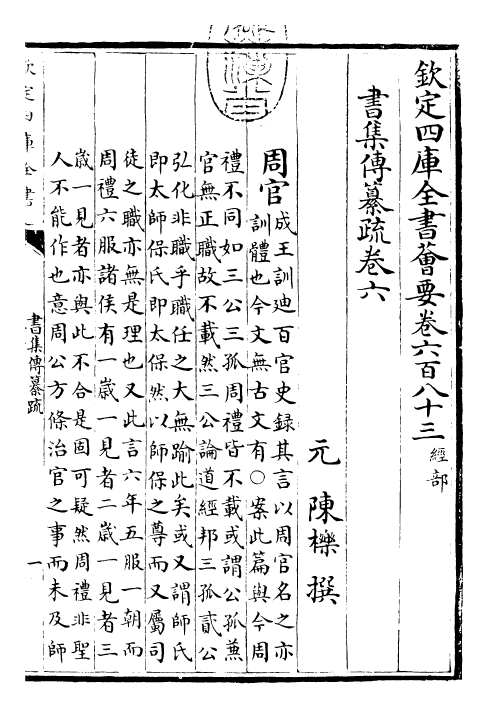 欽定四庫全書薈要卷六百八十三 經部
書集傳纂疏卷六
元 陳櫟 撰
周官 成王訓迪百官史録其言以周官名之亦
訓體也今文無古文有○案此篇與今周
禮不同如三公三孤周禮皆不載或謂公孤兼
官無正職故不載然三公論道經邦三孤貳公
弘化非職乎職任之大無踰此矣或又謂師氏
即太師保氏即太保然以師保之尊而又屬司
徒之職亦無是理也又此言六年五服一朝而
周禮六服諸侯有一歲一見者二歲一見者三
歲一見者亦與此不合是固可疑然周禮非聖
人不能作也意周公方條治官之事而未及師
欽定四庫全書
書集傳纂疏
一